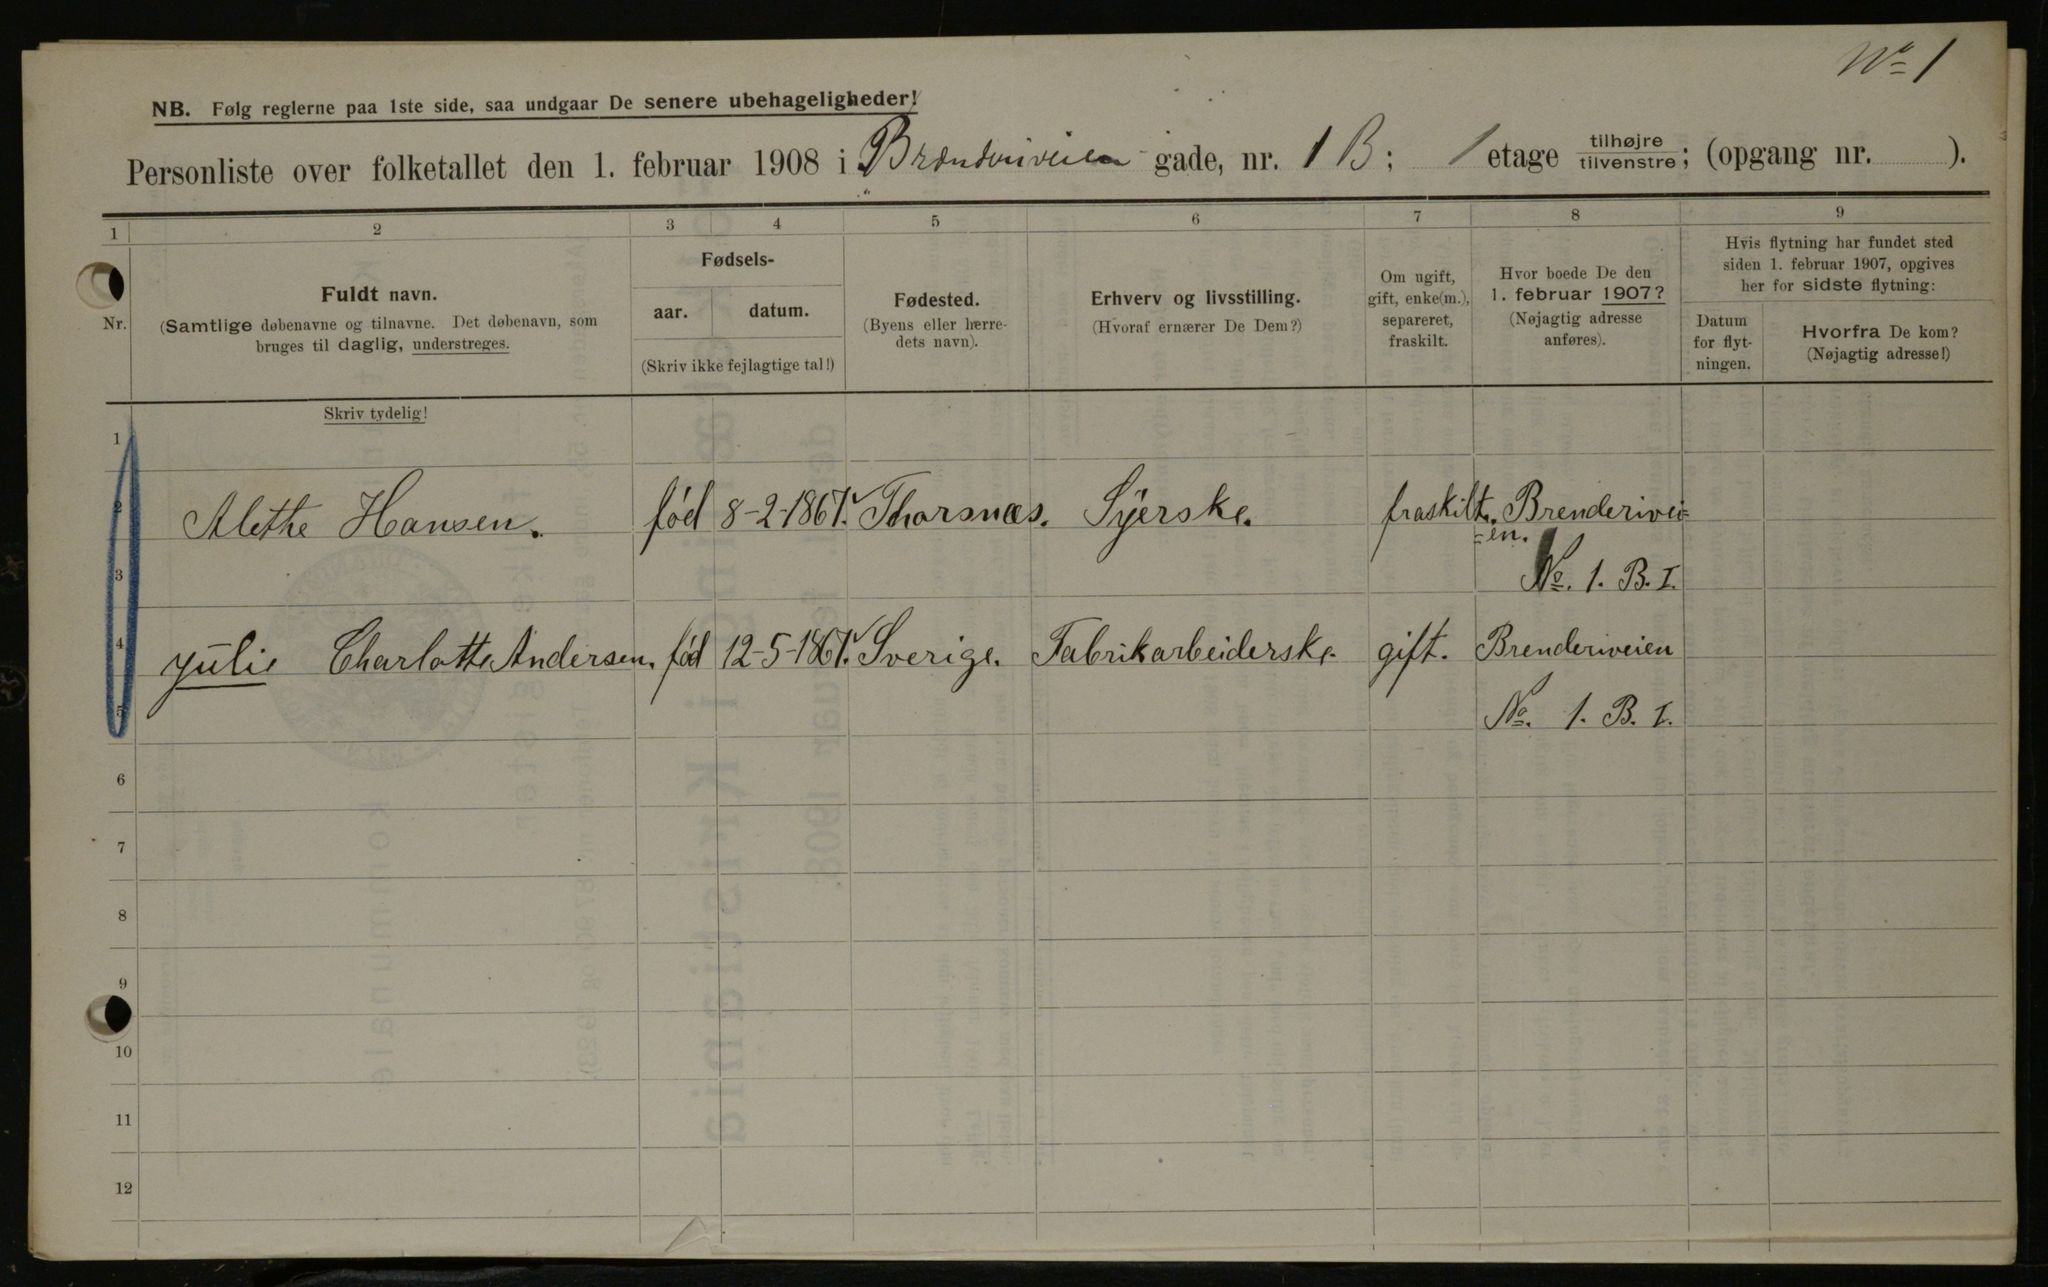 No 1
NB. Følg reglerne paa 1ste side, saa undgaar De senere ubehageligheder!
Personliste over folketallet den 1. februar 1908 i Brænderiveien gade, nr. 1 B; 1 etage tilhøjre tilvenstre; (opgang nr. ).
1 2 3 4 5 6 7 8 9
Nr.
Fuldt navn.
(Samtlige døbenavne og tilnavne. Det døbenavn, som
bruges til daglig, understreges.
Fødsels-
aar. datum.
(Skriv ikke fejlagtige tal!)
Fødested.
(Byens eller herre-
dets navn).
Erhverv og livsstilling.
(Hvoraf ernærer De Dem?)
Om ugift,
gift, enke(m.),
separeret,
fraskilt.
Hvor boede De den
1. februar 1907?
(Nøjagtig adresse
anføres).
Hvis flytning har fundet sted
siden 1. februar 1907, opgives
her for sidste flytning:
Datum
for flyt-
ningen.
Hvorfra De kom?
(Nøjagtig adresse!)
Skriv tydelig!
1
2 Alethe Hansen. fød 8-2-1867. Thorsnæs. Syerske. fraskilt. Brenderivei=
=en.
3 No. 1. B. I.
4 Julie Charlotte Andersen. fød 12-5-1867. Sverige. Fabrikarbeiderske. gift. Brenderiveien
5 No. 1. B. I.
6
7
8
9
10
11
12